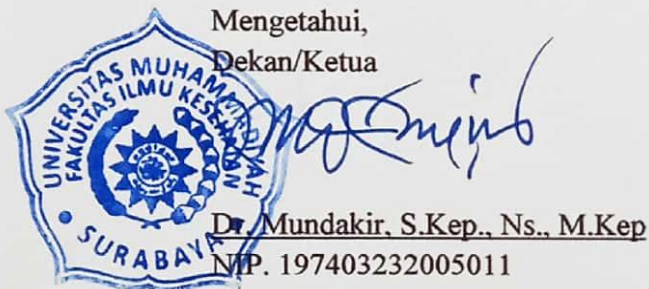 Mengetahui,
Dekan/Ketua
UNIVERSITAS MUHAMMADIYAH
FAKULTAS ILMU KESEHATAN
SURABAYA
Dr. Mundakir, S.Kep., Ns., M.Kep
NIP. 197403232005011